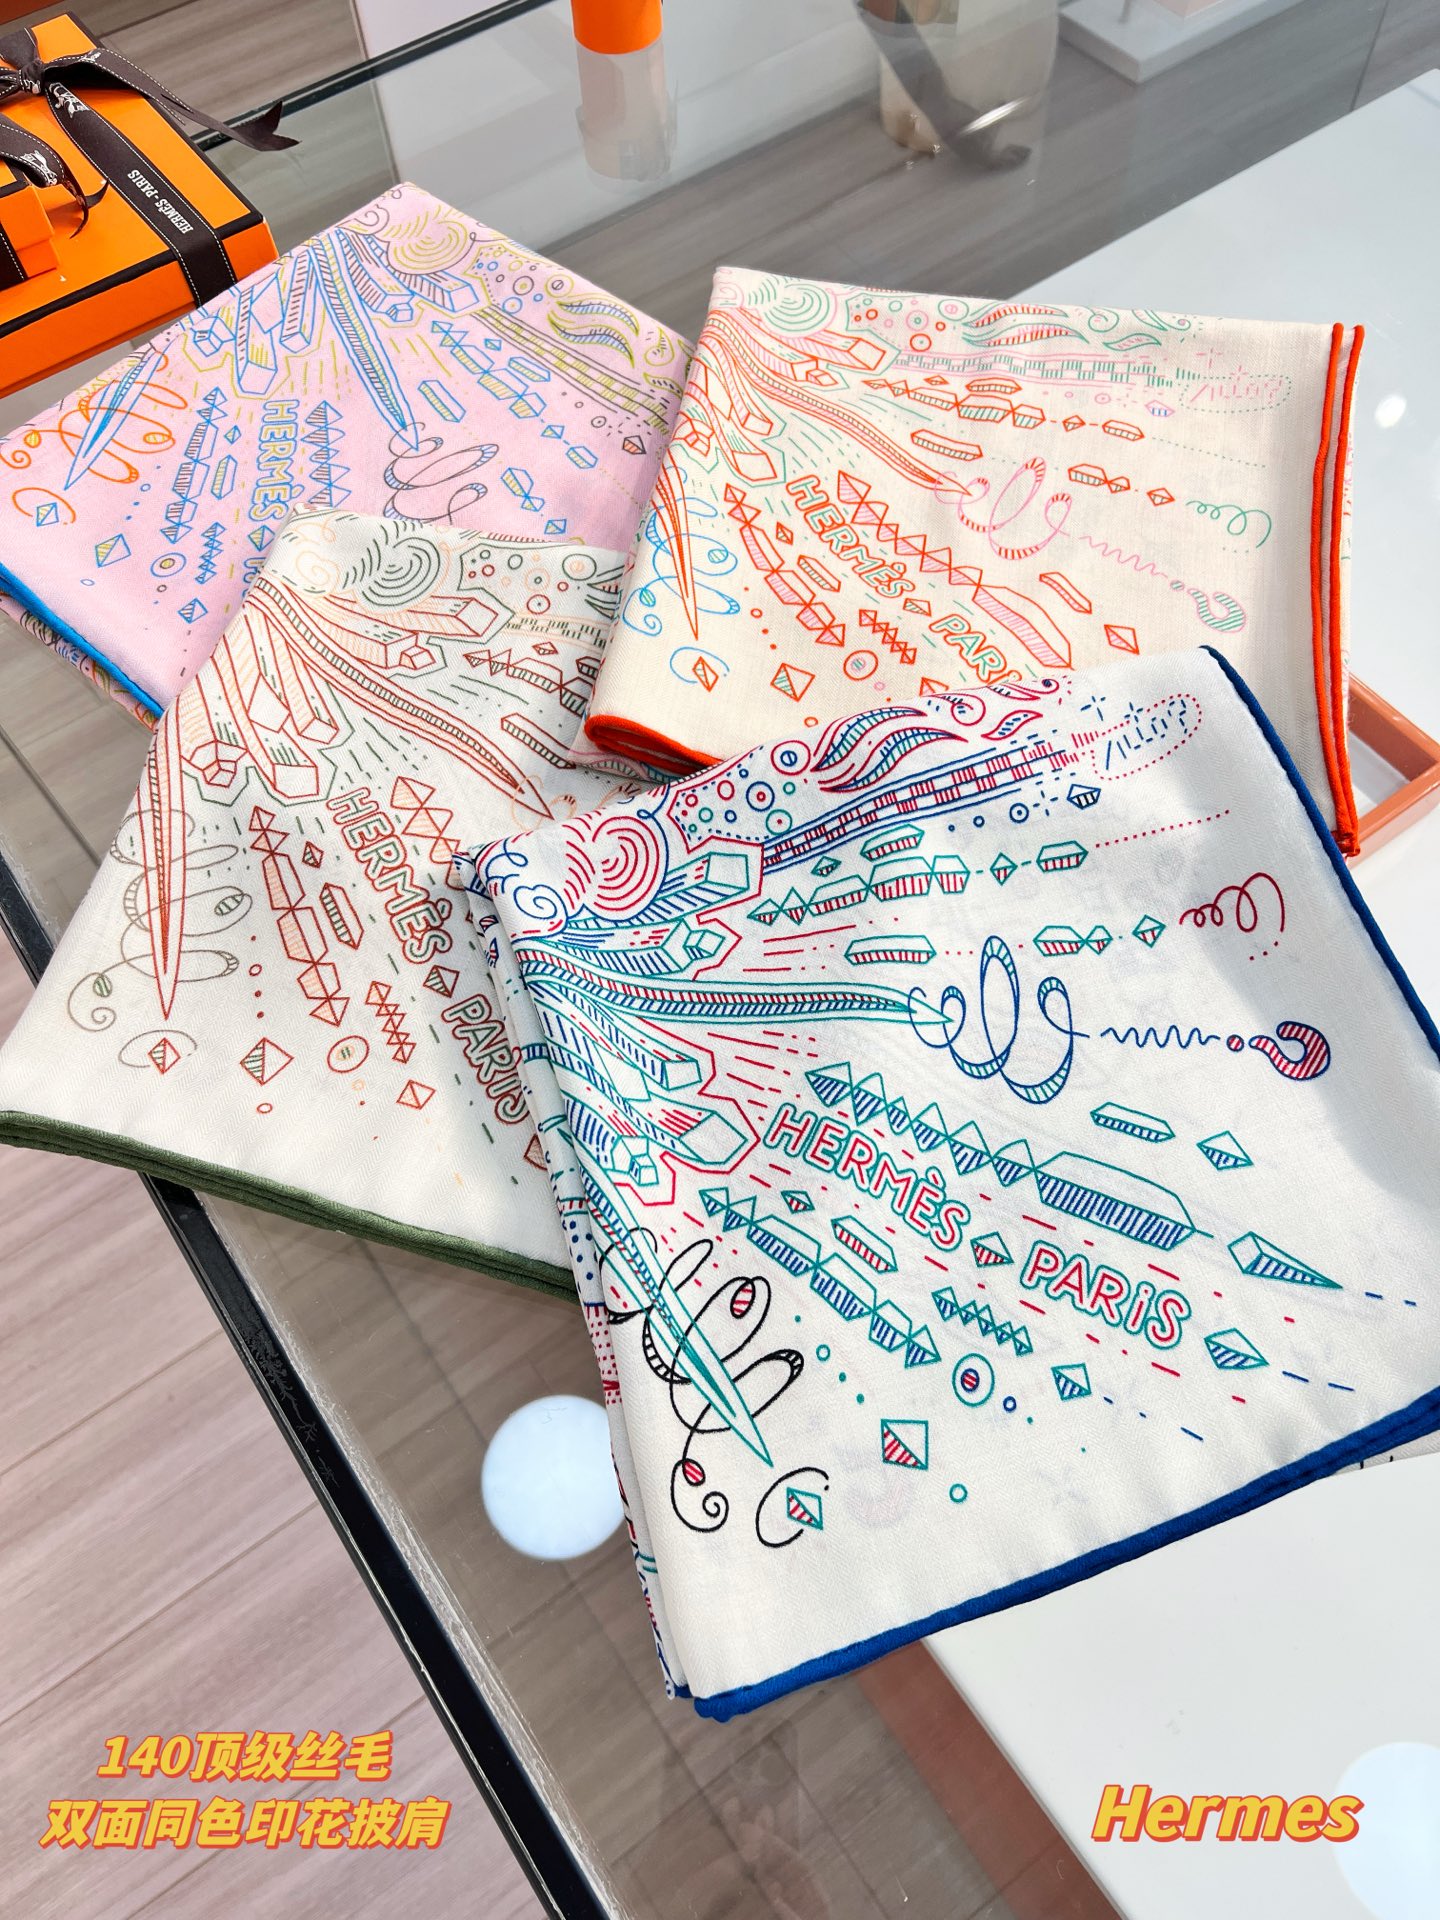 HERMÈS-PARIS
HERMÈS
HERMÈS PARIS
HERMÈS PARIS
HERMÈS PARiS
140顶级丝毛
双面同色印花披肩
Hermes